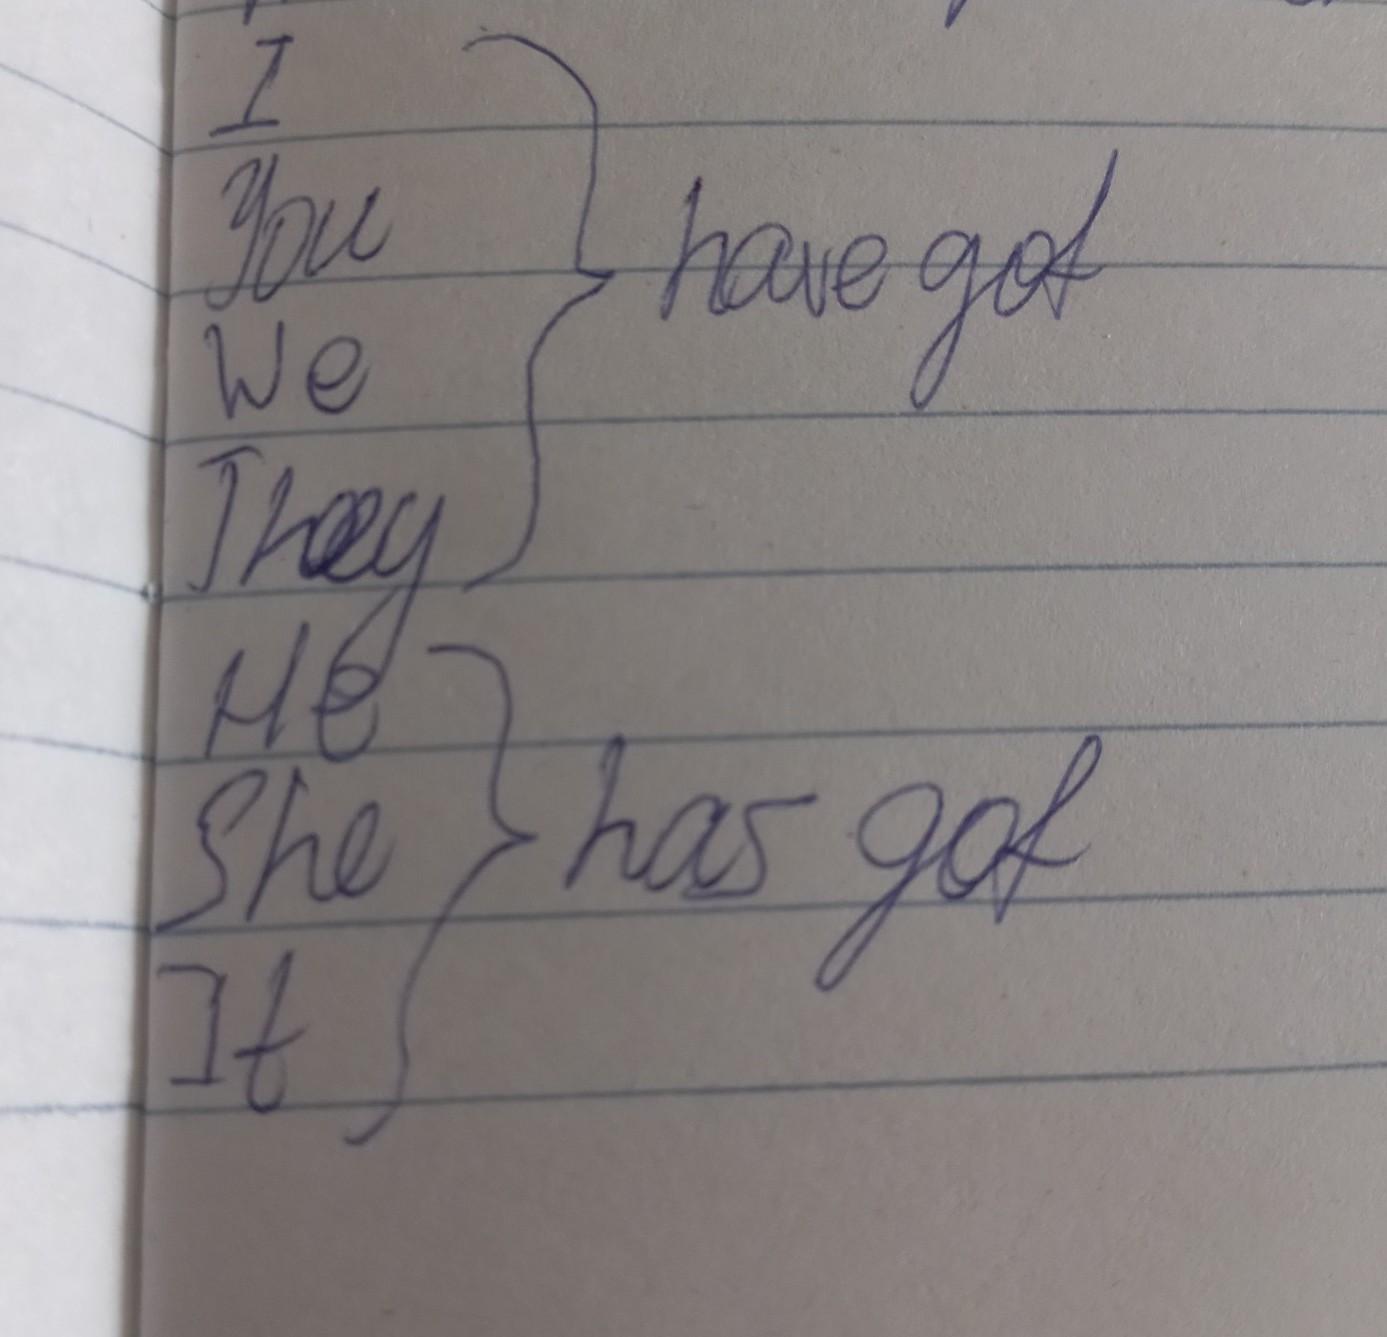 I
You
We
They
have got
He
She
It
has got